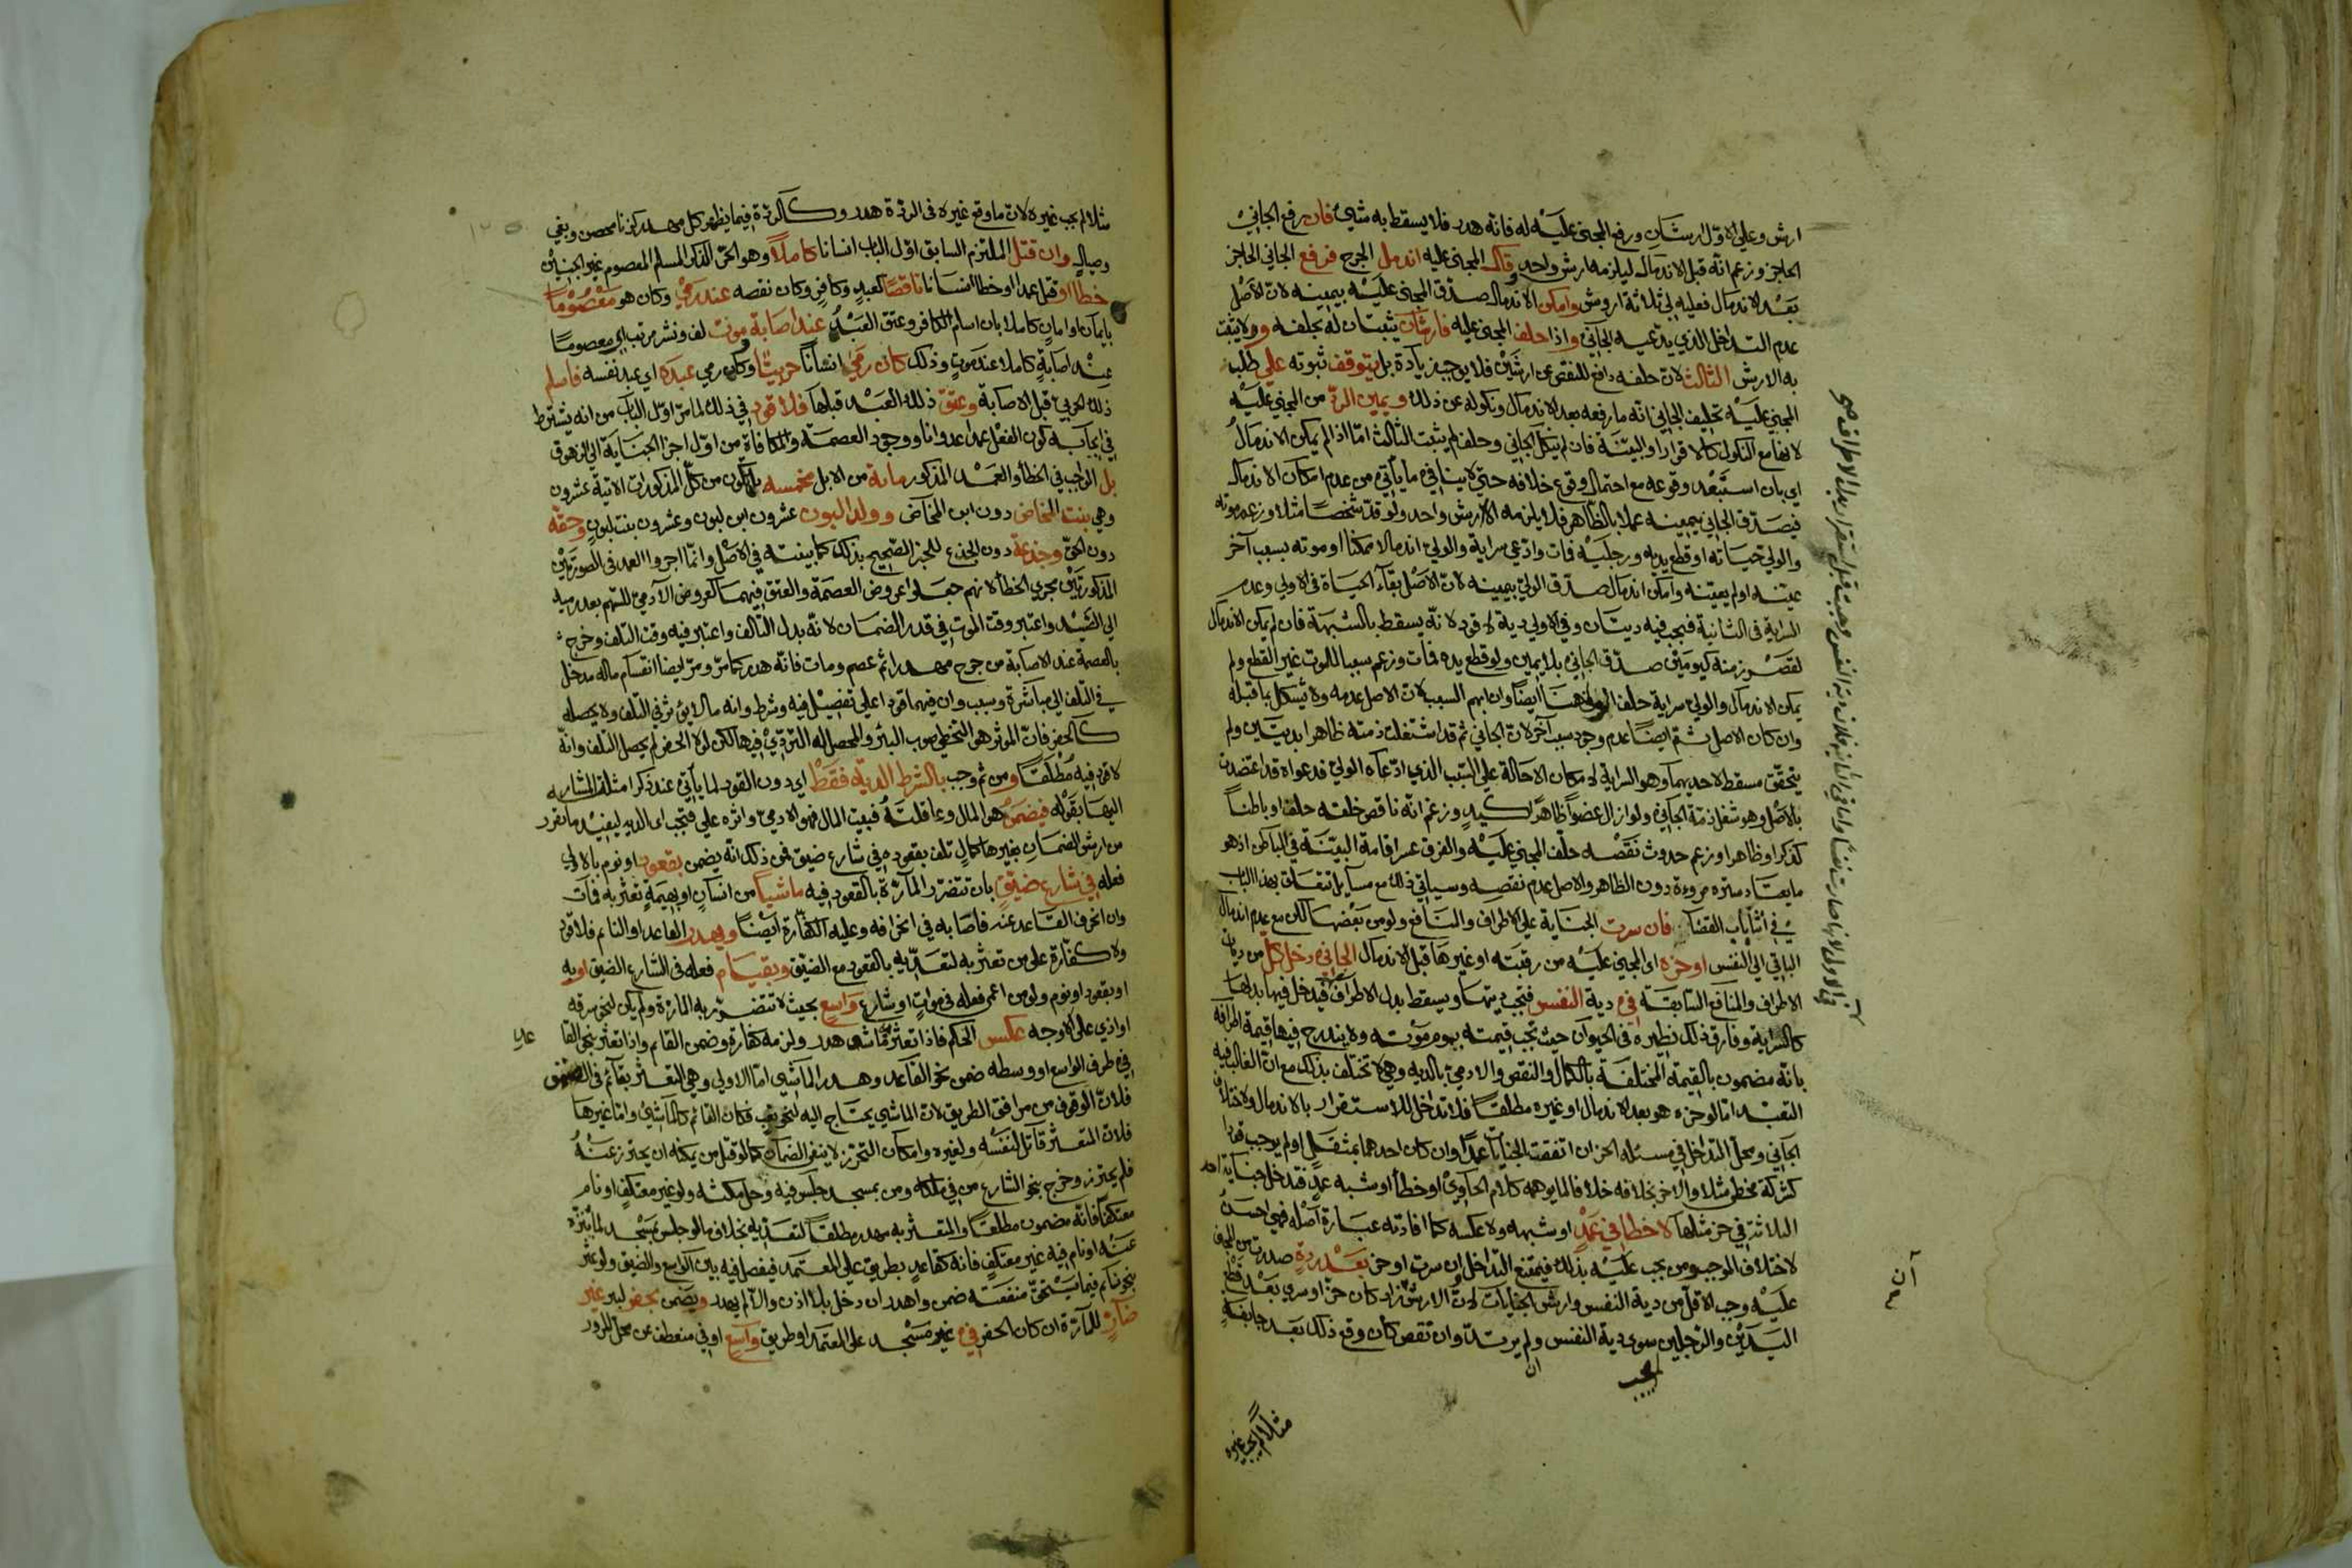 ارش وعلي الاوّل ارشان ورفع المجنى عليه له فانه هدر فلا يسقط به شيء فان رفع الجاني
الحاجز وزعم انه قبل الاندمال ليلزمه ارش واحد وقال المجنى عليه اندمل الجرح فرفع الجاني الحاجز
بعد الاندمال فعليه لي ثلاثة اروش وامكن الاندمال صدق المجنى عليه بيمينه لان الاصل
عدم التداخل الذي يدعيه الجاني واذا حلف المجنى عليه فارشان يثبتان له بحلفه ولا يثبت
به الارش الثالث لان حلفه دافع للنقص عن ارشين فلا يوجب زيادة بل يتوقف ثبوته علي طلب
المجني عليه تحليف الجاني انه ما رفعه بعد الاندمال ونكوله عن ذلك ويمين الرد من المجني عليه
لانها مع النكول كالاقرار او البينة فان لم ينكل الجاني وحلف لم يثبت الثالث امّا اذا لم يمكن الاندمال
اي بان استبعد وقوعه مع احتمال وقوع خلافه حتي لا ينافي ما يأتي من عدم امكان الاندمال
فيصدق الجاني بيمينه عملا بالظاهر فلا يلزمه الا ارش واحد ولو قدّ شخصا مثلا وزعم موته
والولي حياته او قطع يديه ورجليه فمات وادعي سراية والولي اندمالا ممكنا او موته بسبب آخر
عينه او لم يعينه وامكن اندمال صدق الولي بيمينه لان الاصل بقاء الحياة في الاولي وعدم
السراية في الثانية فيجب فيه ديتان وفي الاولي دية لا قود لانه يسقط بالشبهة فان لم يمكن الاندمال
لقصر زمنه كيومين صدق الجاني بلا يمين ولو قطع يده فمات وزعم سببا للموت غير القطع ولم
يمكن الاندمال والولي سراية حلف الولي هنا ايضا وان ابهم السبب لان الاصل عدمه ولا يشكل بما قبله
وان كان الاصل ثم ايضا عدم وجود سبب آخر لان الجاني ثم قد اشتغلت ذمته ظاهرا بديتين ولم
يتحقق مسقط لاحديهما وهو السراية لامكان الاحالة علي السبب الذي ادعاه الولي فدعواه قد اعتضدت
بالاصل وهو شغل ذمة الجاني ولو ازال عضوا ظاهرا كيد وزعم انه ناقص خلقة حلف او باطنا
كذكر او ظاهرا وزعم حدوث نقصه حلف المجني عليه والفرق عسر اقامة البينة في الباطن اذ هو
ما يعتاد ستره مروءة دون الظاهر والاصل عدم نقصه وسياتي ذلك مع مسايل تتعلق بهذا الباب
في اثنا باب القضا فان سرت الجناية علي الاطراف والمنافع ولو من بعضها لكن مع عدم اندمال
الباقي الي النفس او حزه اي المجني عليه من رقبته او غيرها قبل الاندمال الجاني دخل كل من ديات
الاطراف والمنافع السابقة في دية النفس فتجب ديتها ويسقط بدل الاطراف فيدخل فيها بدلها
كالسراية وفارق ذلك نظيره في الحيوان حيث تجب قيمته يوم موته ولا يندرج فيها قيمة اطرافه
بانه مضمون بالقيمة المختلفة بالكمال والنقص والادمي بالدية وهي لا تختلف بذلك مع ان الغالب فيه
التعبد امّا لو حزه هو بعد الاندمال او غيره مطلقا فلا تداخل للاستقرار بالاندمال ولاختلاف
الجاني ومحل التداخل في مسئلة الحز ان اتفقت الجنايات عمدا وان كان احدهما بمثقل او لم يوجب قودا
كشركة مخطئ مثلا والاخر بخلافه خلافا لما يوهمه كلام الحاوي او خطأ او شبه عمد فتدخل جناية احد
الثلاثة في حز مثلها لا خطا في عمد او شبهه ولا عكسه كما افادته عبارة اصله فهي احسن
لاختلاف الموجب ومن يجب عليه بذلك فيمتنع التداخل وان سرت او حز بعد ردة صدرت من المجني
عليه وجب الاقل من دية النفس وارش الجنايات لان الارش ان زاد كان حز او سري بعد قطع
اليدين والرجلين سوي دية النفس ولم يرتد وان نقص كان وقع ذلك بعد جايفة
لم يجب
مثلا لم يجب غيره
مثلا لم يجب غيره لان ما وقع غيره في الردة هدر وكالردة فيما يظهر كل مهدر كزنا محصن وبغي
وصيال وان قتل الملتزم السابق اوّل الباب انسانا كاملا وهو الحر الذكر المسلم المعصوم غير الجنين
خطأ او قتل عمدا او خطأ انسانا ناقصا كعبد وكافر وكان نقصه عند رمي وكان هو معصوما
بايمان او امان كاملا بان اسلم الكافر وعتق العبد عند اصابة وموت لف ونشر مرتب اي معصوما
عند اصابة كاملا عند موت وذلك كان رمي انسانا حربيا وكان رمي عبده اي عبد نفسه فاسلم
ذلك الحربي قبل الاصابة وعتق ذلك العبد قبلها فلا قود في ذلك لما مر اوّل الباب من انه يشترط
في ايجابه كون الفعل عمدا عدوانا ووجود العصمة والمكافاة من اوّل اجزا الجناية الي الزهوق
بل الواجب في الخطأ والعمد المذكور مائة من الابل مخمسة بان يكون من كل المذكورات الاتية عشرون
وهي بنت المخاض دون ابن المخاض وولد اللبون عشرون ابن لبون وعشرون بنت لبون وحقة
دون الحق وجذعة دون الجذع للخبر الصحيح بذلك كما بينته في الاصل وانما اجروا العمد في الصورتين
المذكورتين مجري الخطأ لانهم جعلوا عروض العصمة والعتق فيهما كعروض الآدمي للسهم بعد رميه
الي الصيد واعتبر وقت الموت في قدر الضمان لانه بدل التالف واعتبر فيه وقت التلف وخرج
بالعصمة عند الاصابة من جرح مهدرا ثم عصم ومات فانه هدر كما مر ومر ايضا انقسام ماله مدخل
في التلف الي مباشرة وسبب وان فيهما قودا علي تفصيل فيه وشرط وانه مالا يؤثر في التلف ولا يحصله
كالحفر فان المؤثر هو التخطي صوب البئر والمحصل له التردي فيها لكن لولا الحفر لم يحصل التلف وانه
لا قود فيه مطلقا ومن ثم وجب بالشرط الدية فقط اي دون القود لما يأتي عند ذكر امثلة المشار
اليها بقوله فيضمن هو المال وعاقلته فبقيت المال فهو الادمي واثره علي فتجب اي الدية ليفيد ما تقرر
من ارش الضمان بغيرها كمال تلف بقعوده في شارع ضيق فمن ذلك انه يضمن بقعود او نوم بالاولي
فعله في شارع ضيق بان تتضرر المارة بالقعود فيه ماشيا من انسان او بهيمة تعثر به فمات
وان انحرف القاعد عنه فاصابه في انحرافه وعليه الكفارة ايضا ويهدر القاعد او النائم فلا قود
ولا كفارة علي من تعثر به لتعديه بالقعود مع الضيق وبقيام فعله في الشارع الضيق او به
او بقعود او نوم ولو من اعمى فعله في موات او شارع واسع بحيث لا تتضرر به المارة ولم يكن لنحو سرقة
او اذي علي الاوجه عكس الحكم فاذا تعثر ماشي هدر ولزمه كفارة وضمن القائم واذا تعثر بنحو القا
في طرف الواسع او وسطه ضمن نحو القاعد وهدر الماشي امّا الاولي وهي التعثر بقائم في الضيق
فلان الوقوف من مرافق الطريق لان الماشي يحتاج اليه لنحو تعب فكان القائم كالماشي وامّا غيرها
فلان المتعثر قاتل لنفسه ولغيره وامكان التحرز لا ينفي الضمان كما لو قتل من يمكنه ان يحترز عنه
فلم يحترز وخرج بنحو الشارع من في ملكه ومن بمسجد جلس فيه وحل مكثه ولو غير معتكف او نام
معتكفا فانه مضمون مطلقا والمتعثر به مهدر مطلقا لتعديه بخلاف ما لو جلس بمسجد لما ينزه
عنه او نام فيه غير معتكف فانه كقاعد بطريق علي المعتمد فيفصل فيه بين الواسع والضيق ولو عثر
بنحو نائم فيما يستحق منفعته ضمن واهدر ان دخل بلا اذن والا لم يهدر ويضمن بحفر لبير غير
ضار للمارة ان كان الحفر في غير مسجد علي المعتمد او طريق واسع او في منعطف عن محل المرور